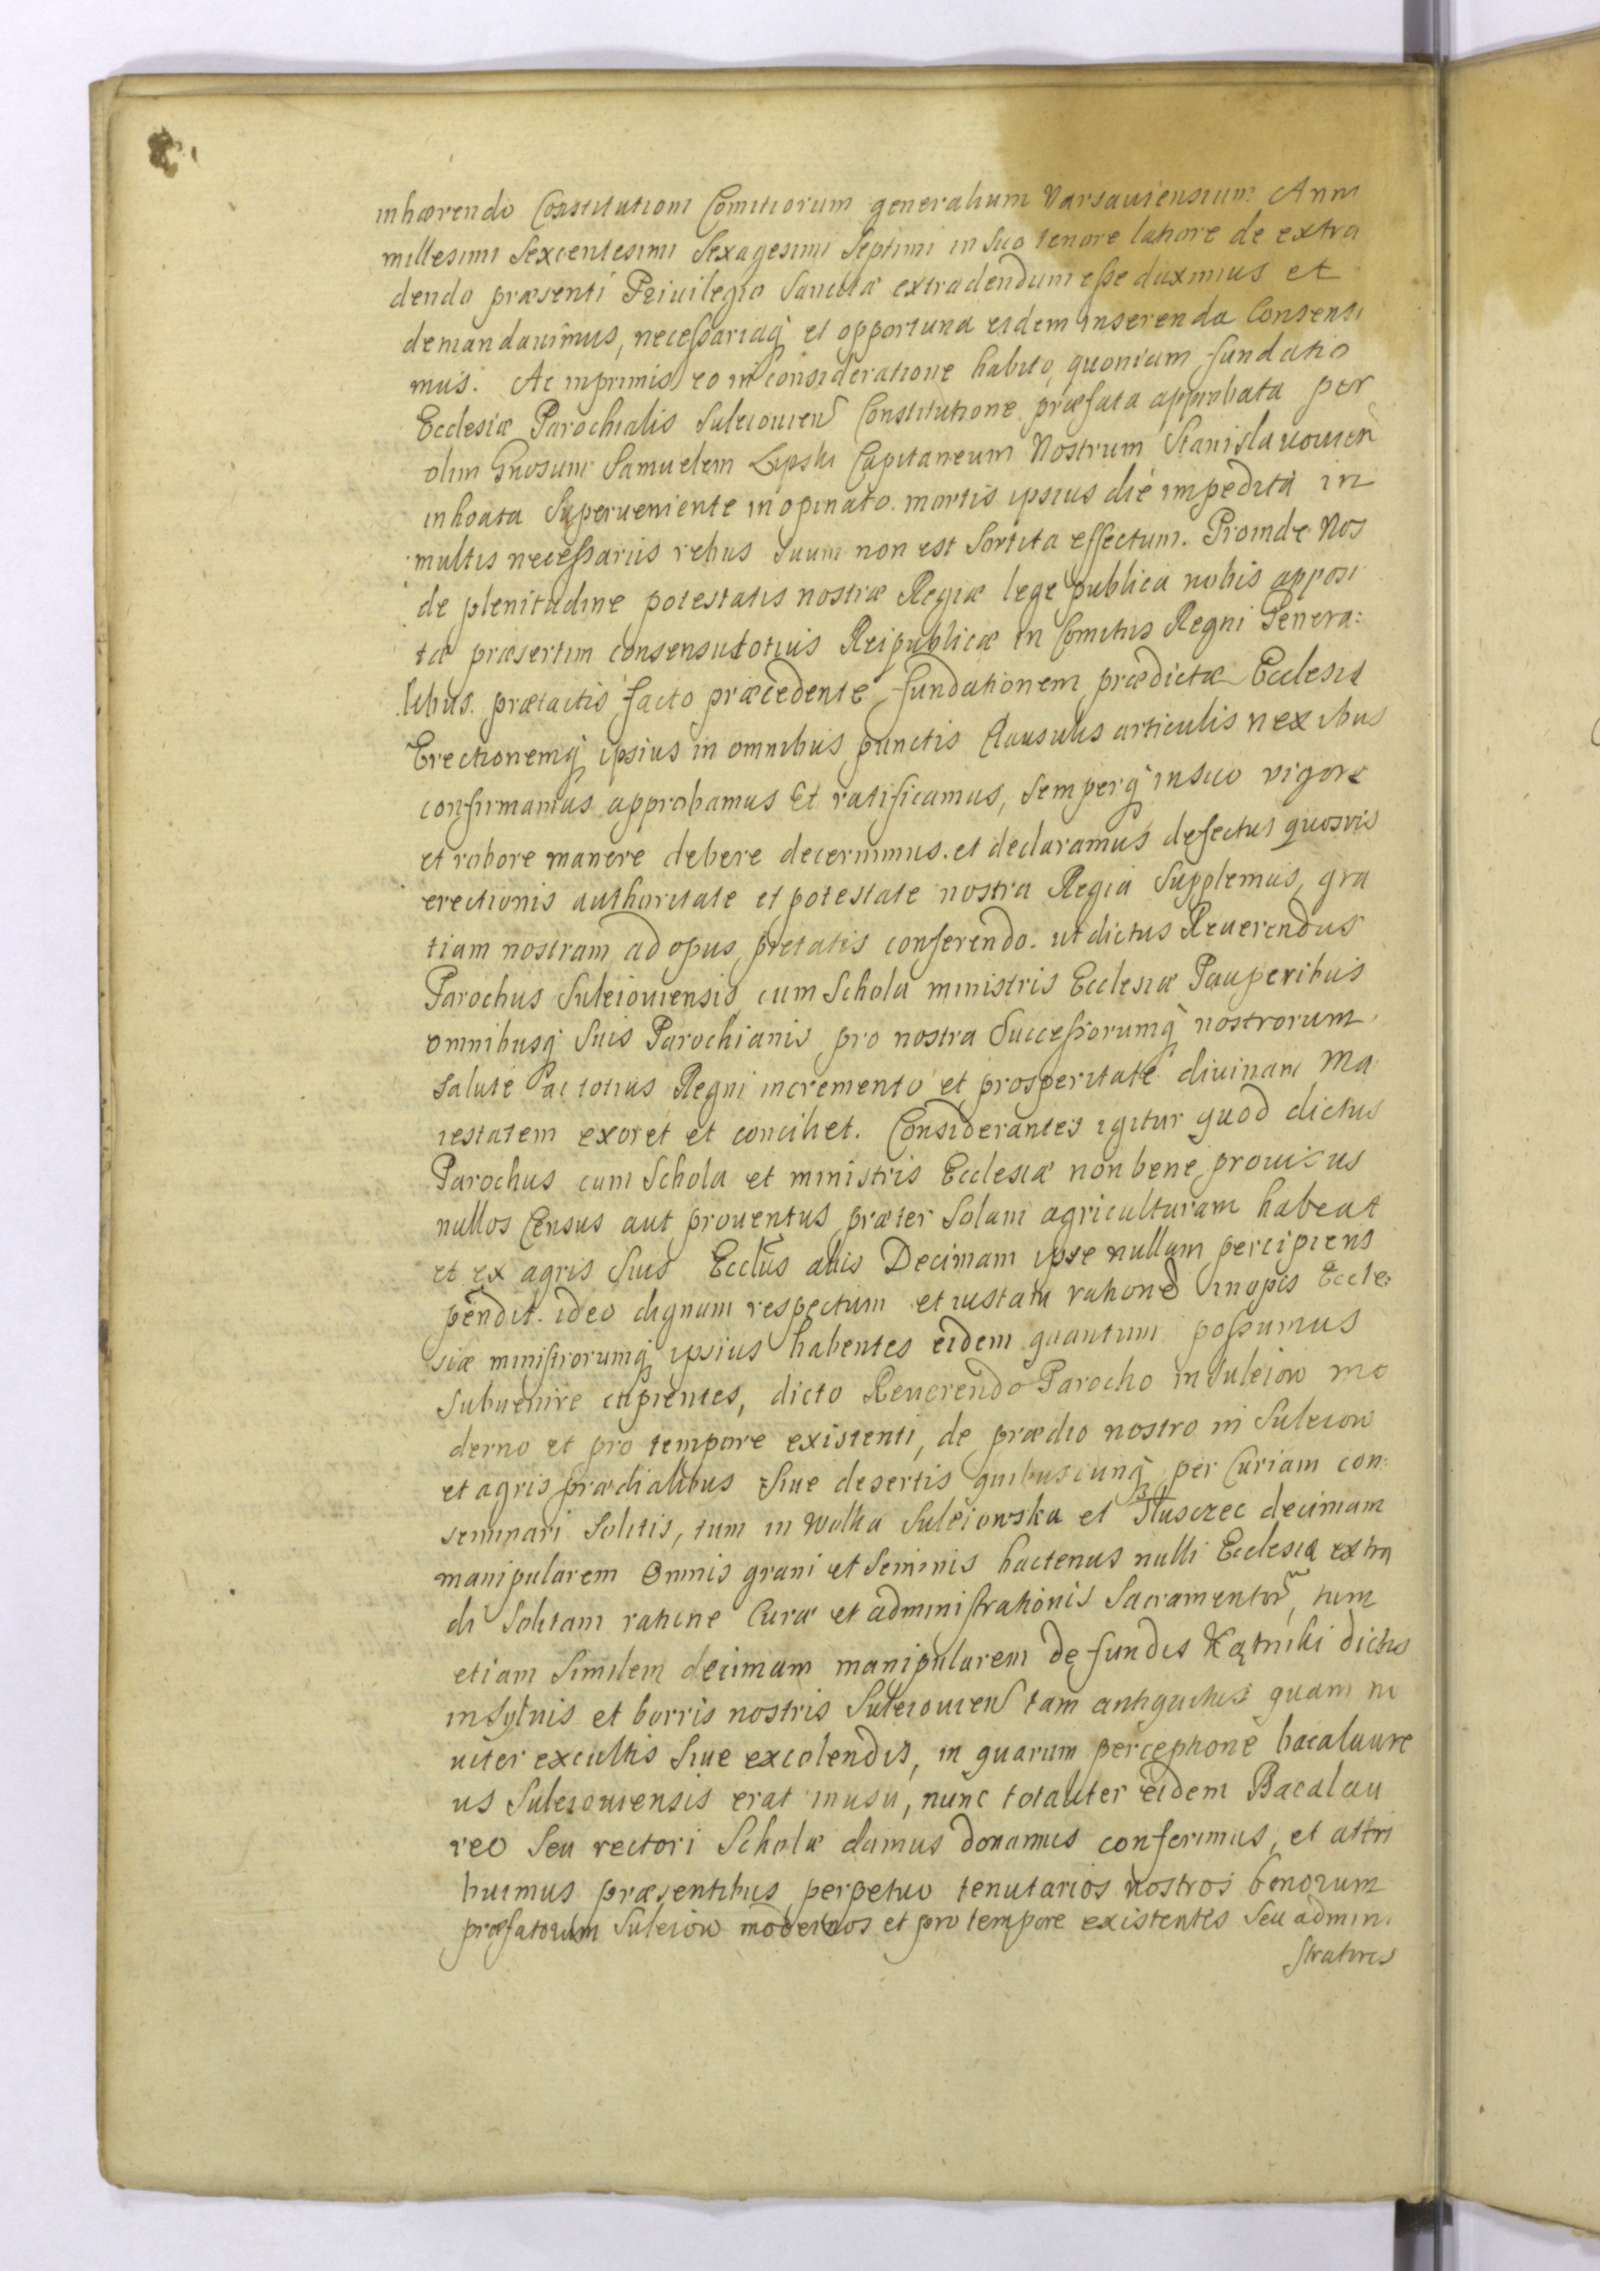 inhærendo Constitutioni Comitiorum generalium Varsauiensium Anni
millesimi Sexcentesimi Sexagesimi Septimi in suo tenore latiore de extra
dendo præsenti Priuilegio Sancitæ extradendum esse duximus et
demandauimus, necessariaq et opportuna eidem inserenda Consensi
mus. Ac inprimis eo in consideratione habito, quoniam fundatio
Ecclesiæ Parochialis Suleiouien Constitutione præfata approbata per
olim Gnosum Samuelem Lipski Capitaneum Nostrum Stanislauouien
inhoata Superueniente inopinato mortis ipsius die impedita in
multis necessariis rebus suum non est Sortita effectum. Proinde Nos
de plenitudine potestatis nostræ Regiæ lege publica nobis apposi
ta præsertim consensu totius Reipublicæ in Comitiis Regni Genera:
libus prætactis facto præcedente fundationem prædictæ Ecclesiæ
Erectionemq ipsius in omnibus punctis Clausulis articulis nexibus
confirmamus approbamus et ratificamus, semperq in suo vigore
et robore manere debere decernimus et declaramus defectus quosvis
erectionis authoritate et potestate nostra Regia supplemus, gra
tiam nostram ad opus pietatis conferendo. ut dictus Reuerendus
Parochus Suleiouiensis cum Schola ministris Ecclesiæ Pauperibus
omnibusq Suis Parochianis pro nostra Successorumq nostrorum
salute ac totius Regni incremento et prosperitate diuinam Ma
iestatem exoret et conciliet. Considerantes igitur quod dictus
Parochus cum Schola et ministris Ecclesiæ non bene prouisus
nullos Census aut prouentus præter Solam agriculturam habeat
et ex agris Suis Ecclūs aliis Decimam ipse nullam percipiens
pendit. ideo dignum respectum et iustam rationē inopis Eccle:
siæ ministrorumq ipsius habentes eidem quantum possumus
Subuenire cupientes, dicto Reuerendo Parocho in Suleiow mo
derno et pro tempore existenti, de prædio nostro in Suleiow
et agris prædialibus siue desertis quibuscunq per Curiam con:
seminari Solitis, tum in Wolka Suleiowska et decimam
manipularem Omnis grani et Seminis hactenus nulli Ecclesiæ extra
di Solitam ratione Curæ et administrationis Sacramentor, tum
etiam Similem decimam manipularem de fundis Kątniki dictis
in syluis et borris nostris Suleiouien tam antiquitus quam no
uiter excultis siue excolendis, in quarum perceptione bacalaure
us Suleiouiensis erat in usu, nunc totaliter eidem Bacalau
reo Seu rectori Scholæ damus donamus conferimus, et attri
buimus præsentibus perpetuo tenutarios nostros bonorum
præfatorum Suleiow modernos et pro tempore existentes seu admini
stratores